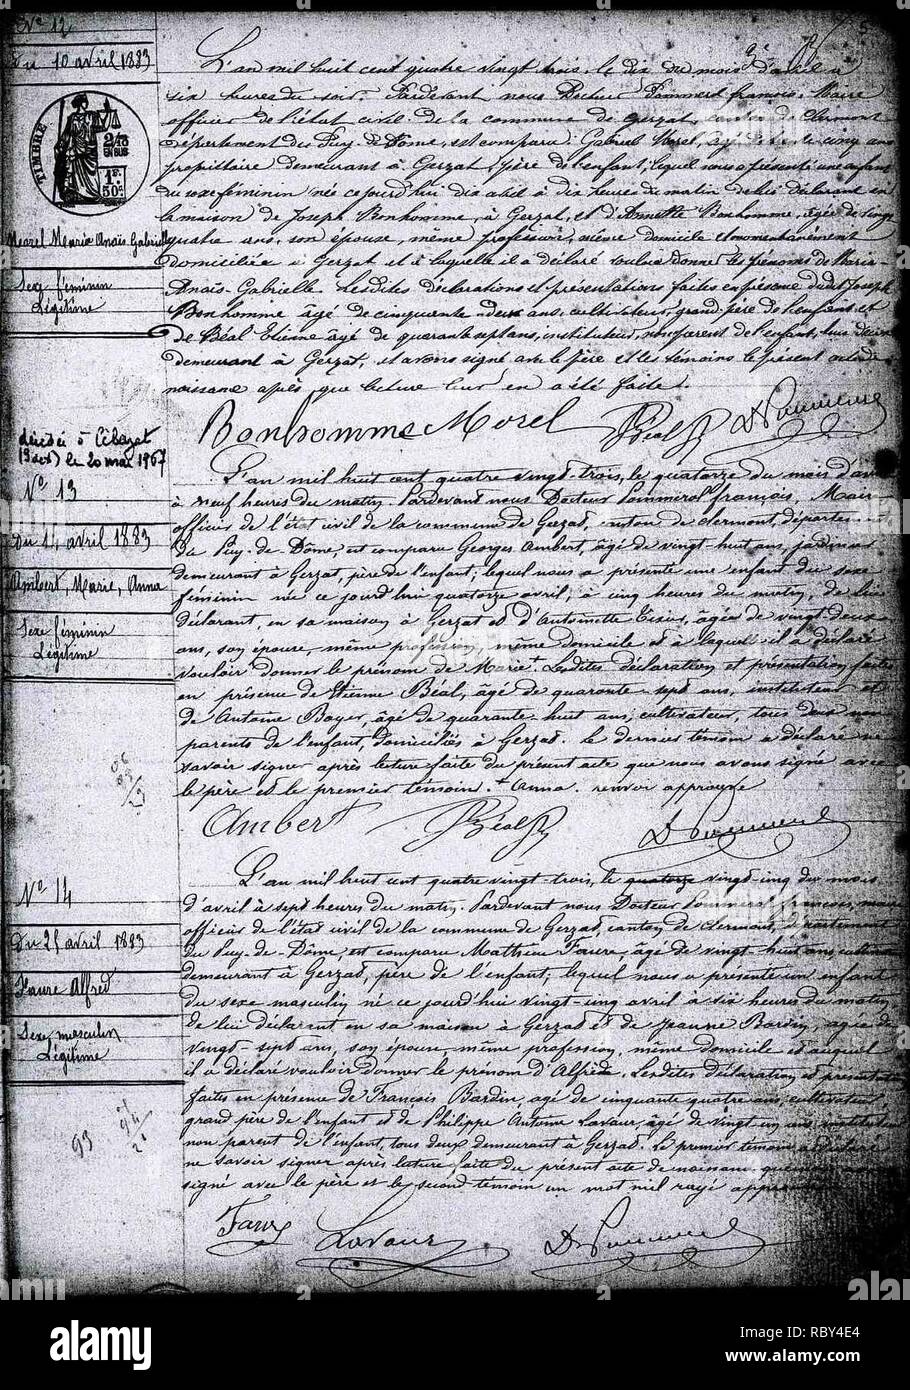 N° 12
Du 10 avril 1883
TIMBRE
1F.
50c
Morel Marie Anaïs Gabrielle
Sexe féminin
Légitime
L'an mil huit cent quatre vingt trois, le dix du mois d'avril à
six heures du soir. Pardevant nous Docteur Pommerol françois, Maire
officier de l'état civil de la commune de Gerzat, canton de Clermont
département du Puy-de-Dôme, est comparu Gabriel Morel, âgé de cinq ans
propriétaire demeurant à Gerzat, père de l'enfant, lequel nous a présenté une enfant
du sexe féminin née ce jourd'hui dix avril à dix heures du matin de lui déclarant en
la maison de Joseph Bonhomme, à Gerzat, et d'Annette Bonhomme, âgée de vingt
quatre ans, son épouse, même profession, même domicile et momentanément
domiciliée à Gerzat et à laquelle il a déclaré vouloir donner les prénoms de Marie-
Anaïs-Gabrielle. Lesdites déclarations et présentations faites en présence dudit Joseph
Bonhomme âgé de cinquante deux ans, cultivateur, grand-père de l'enfant et
de Béal Etienne âgé de quarante sept ans, instituteur, non parent de l'enfant, tous deux
demeurant à Gerzat, et avons signé avec le père et les témoins le présent acte de
naissance après que lecture leur en a été faite.
Bonhomme Morel Béal Dr Pommerol
décédée à Cébazat
le 20 mai 1967
N° 13
Du 14 avril 1883
Ambert, Marie, Anna
Sexe féminin
Légitime
L'an mil huit cent quatre vingt-trois, le quatorze du mois d'avril
à neuf heures du matin. Pardevant nous Docteur Pommerol françois, Maire
officier de l'état civil de la commune de Gerzat, canton de clermont, département
du Puy-de-Dôme, est comparu Georges Ambert, âgé de vingt-huit ans,
demeurant à Gerzat, père de l'enfant; lequel nous a présenté une enfant du sexe
féminin née ce jourd'hui quatorze avril, à cinq heures du matin, de lui
déclarant, en sa maison à Gerzat et d'Antoinette âgée de vingt-deux
ans, son épouse, même profession, même domicile et à laquelle il a déclaré
vouloir donner le prénom de Marie+. Lesdites déclaration et présentation faites
en présence de Etienne Béal, âgé de quarante-sept ans, instituteur et
de Antoine Boyer, âgé de quarante-huit ans, cultivateur, tous deux non
parents de l'enfant, domiciliés à Gerzat. Le dernier témoin a déclaré ne
savoir signer après lecture faite du présent acte que nous avons signé avec
le père et le premier témoin. + Anna. renvoi approuvé
Ambert Béal Dr Pommerol
N° 14
Du 25 avril 1883
Faure Alfred
Sexe masculin
Légitime
93
L'an mil huit cent quatre vingt-trois, le quatorze vingt-cinq du mois
d'avril à sept heures du matin. Pardevant nous Docteur Pommerol françois, maire
officier de l'état civil de la commune de Gerzat, canton de clermont, département
du Puy-de-Dôme, est comparu Mathieu Faure, âgé de vingt-huit ans, cultivateur
demeurant à Gerzat, père de l'enfant; lequel nous a présenté un enfant
du sexe masculin né ce jourd'hui vingt-cinq avril à six heures du matin
de lui déclarant en sa maison à Gerzat et de Jeanne Bardin, âgée de
vingt-sept ans, son épouse même profession, même domicile et auquel
il a déclaré vouloir donner le prénom d'Alfred. Lesdites déclaration et présentation
faites en présence de François Bardin, âgé de cinquante quatre ans, cultivateur
grand père de l'enfant et de Philippe Antoine Lavaur, âgé de vingt un ans, instituteur
non parent de l'enfant, tous deux demeurant à Gerzat. Le premier témoin a déclaré
ne savoir signer après lecture faite du présent acte de naissance que nous avons
signé avec le père et le second témoin un mot nul rayé approuvé
Faure Lavaur Dr Pommerol
alamy
Image ID: RBY4E4
www.alamy.com